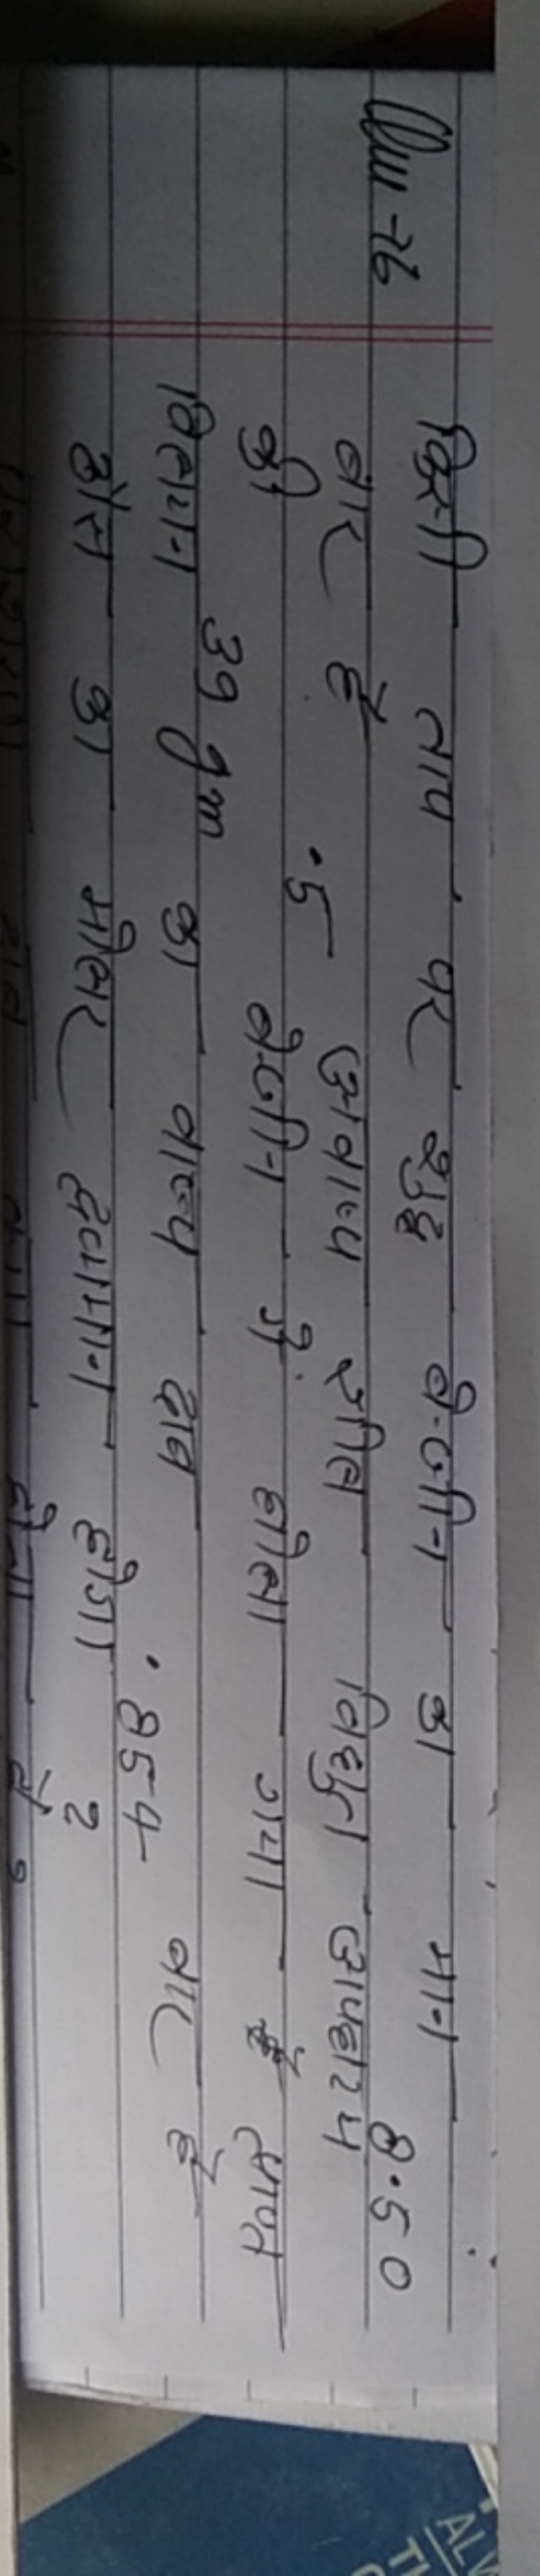 Qu-76 किसी ताप पर शुद्ध बेन्जीन का मान 8.50
बार है .5 अवाष्प शील विद्युत अपघटय
की 39 gm बेन्जीन में घोला गया है प्राप्त
विलयन का वाष्प दाब .854 बार है
ठोस का मोलर द्रव्यमान होगा ?